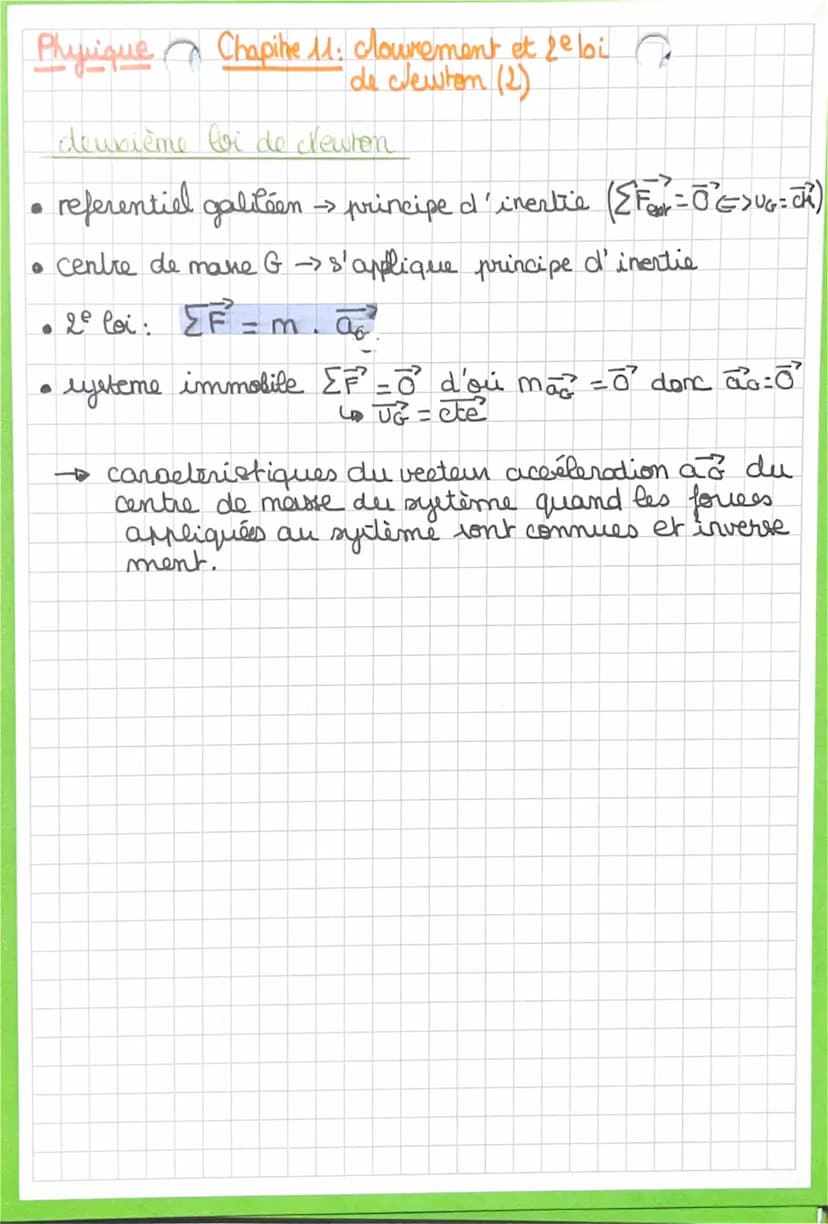 Physique Chapitre 11: Mouvement et 2e loi
de Newton (2)
deuxième loi de Newton
• referentiel galiléen → principe d'inertie (ΣF⃗ext = 0⃗ <=> vG = c⃗te)
• centre de masse G → s'applique principe d'inertie
• 2e loi : ΣF⃗ = m . a⃗G.
• systeme immobile ΣF⃗ = 0⃗ d'où m a⃗G = 0⃗ donc a⃗G = 0⃗
↳ v⃗G = c⃗te
→ caracteristiques du vecteur accélération a⃗G du
centre de masse du système quand les forces
appliqués au système sont connues et inverse
ment.